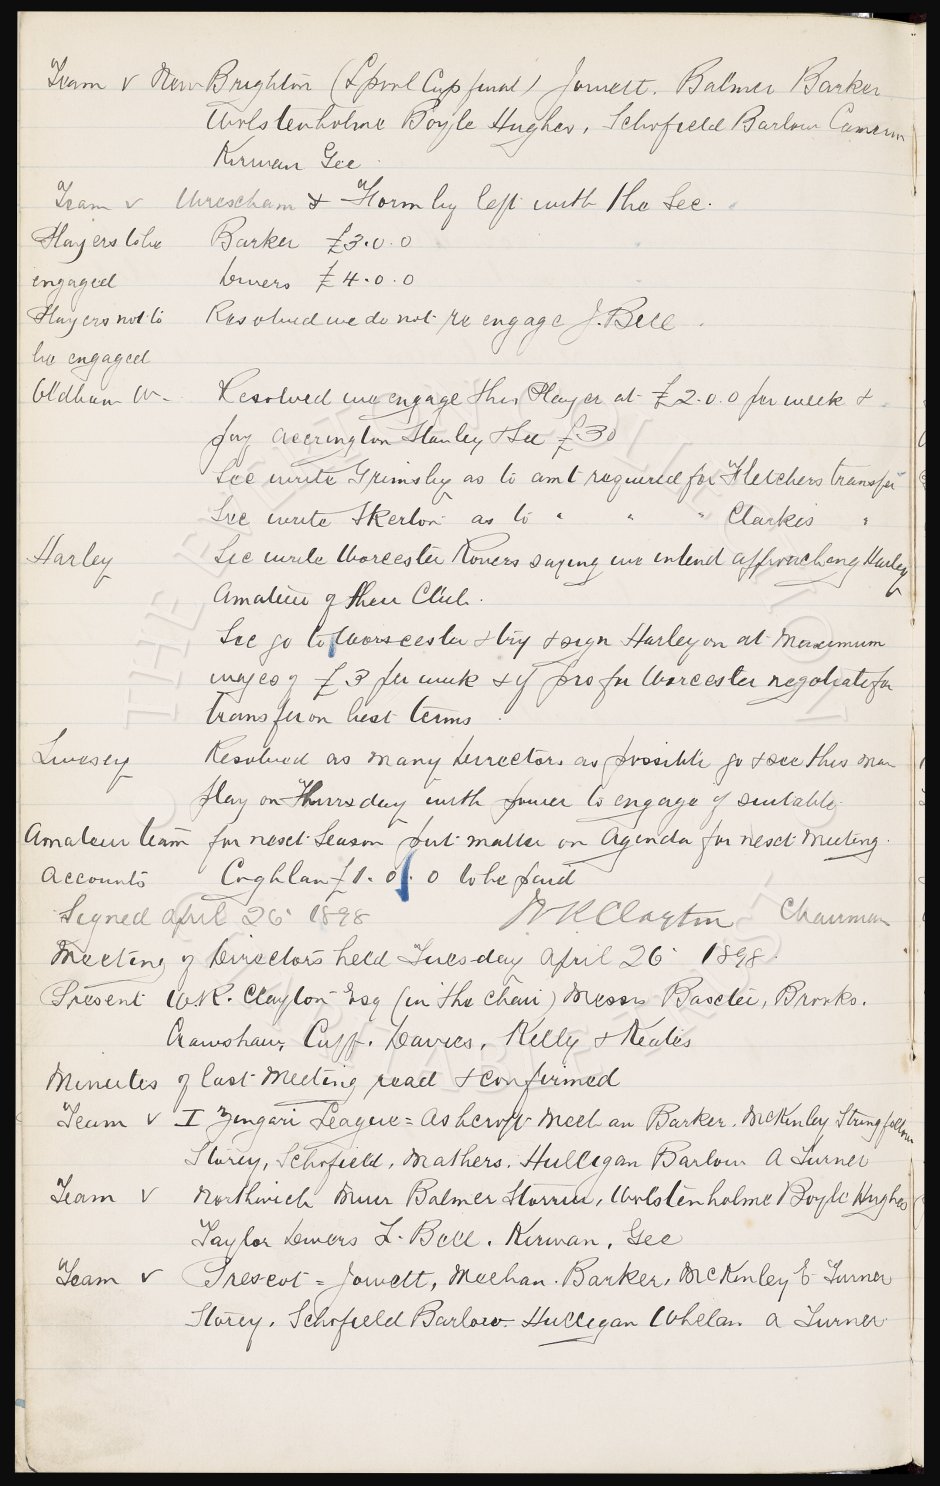 Team v New Brighton (Lpool Cup final) Jowett. Balmer Barker
Wolstenholme Boyle Hughes, Schofield Barlow Cameron
Kirwan Gee
Team v Wrexham & Formby left with the Sec.
Players to be Barker £3.0.0
engaged Divers £4.0.0
Players not to Resolved we do not re engage J. Bell.
be engaged
Oldham W- Resolved we engage this Player at £2.0.0 per week &
pay Accrington Stanley & See £30
Sec write Grimsby as to amt required for Fletchers transfer
Sec write Skerton as to " " " Clarkes "
Harley Sec write Worcester Rovers saying we intend approaching Harley
Amateur of their Club.
Sec go to Worscester & try & sign Harley on at Maximum
wages of £3 per week & if pro for Worcester negotiate for
transfer on best terms
Livesey Resolved as many Directors as possible go & see this man
play on Thursday with power to engage if suitable.
Amateur team for next Season put matter on Agenda for next Meeting.
Accounts Coghlan £1.0.0 to be paid
Signed April 26 1898 W R Clayton Chairman
Meeting of Directors held Tuesday April 26 1898.
Present W.R. Clayton Esq (in the chair) Messrs Baxter, Brooks.
Crawshaw, Cuff. Davies, Kelly & Keates
Minutes of last Meeting read & confirmed
Team v I Zingari League = Ashcroft Meehan Barker. McKinley Stringfellow
Storey, Schofield, Mathers. Hulligan Barlow A Turner
Team v Northwich Muir Balmer Storrier, Wolstenholme Boyle Hughes
Taylor Divers L. Bell. Kirwan, Gee
Team v Prescot = Jowett, Meehan. Barker, McKinley E Turner
Storey. Schofield Barlow. Hulligan Whelan A Turner